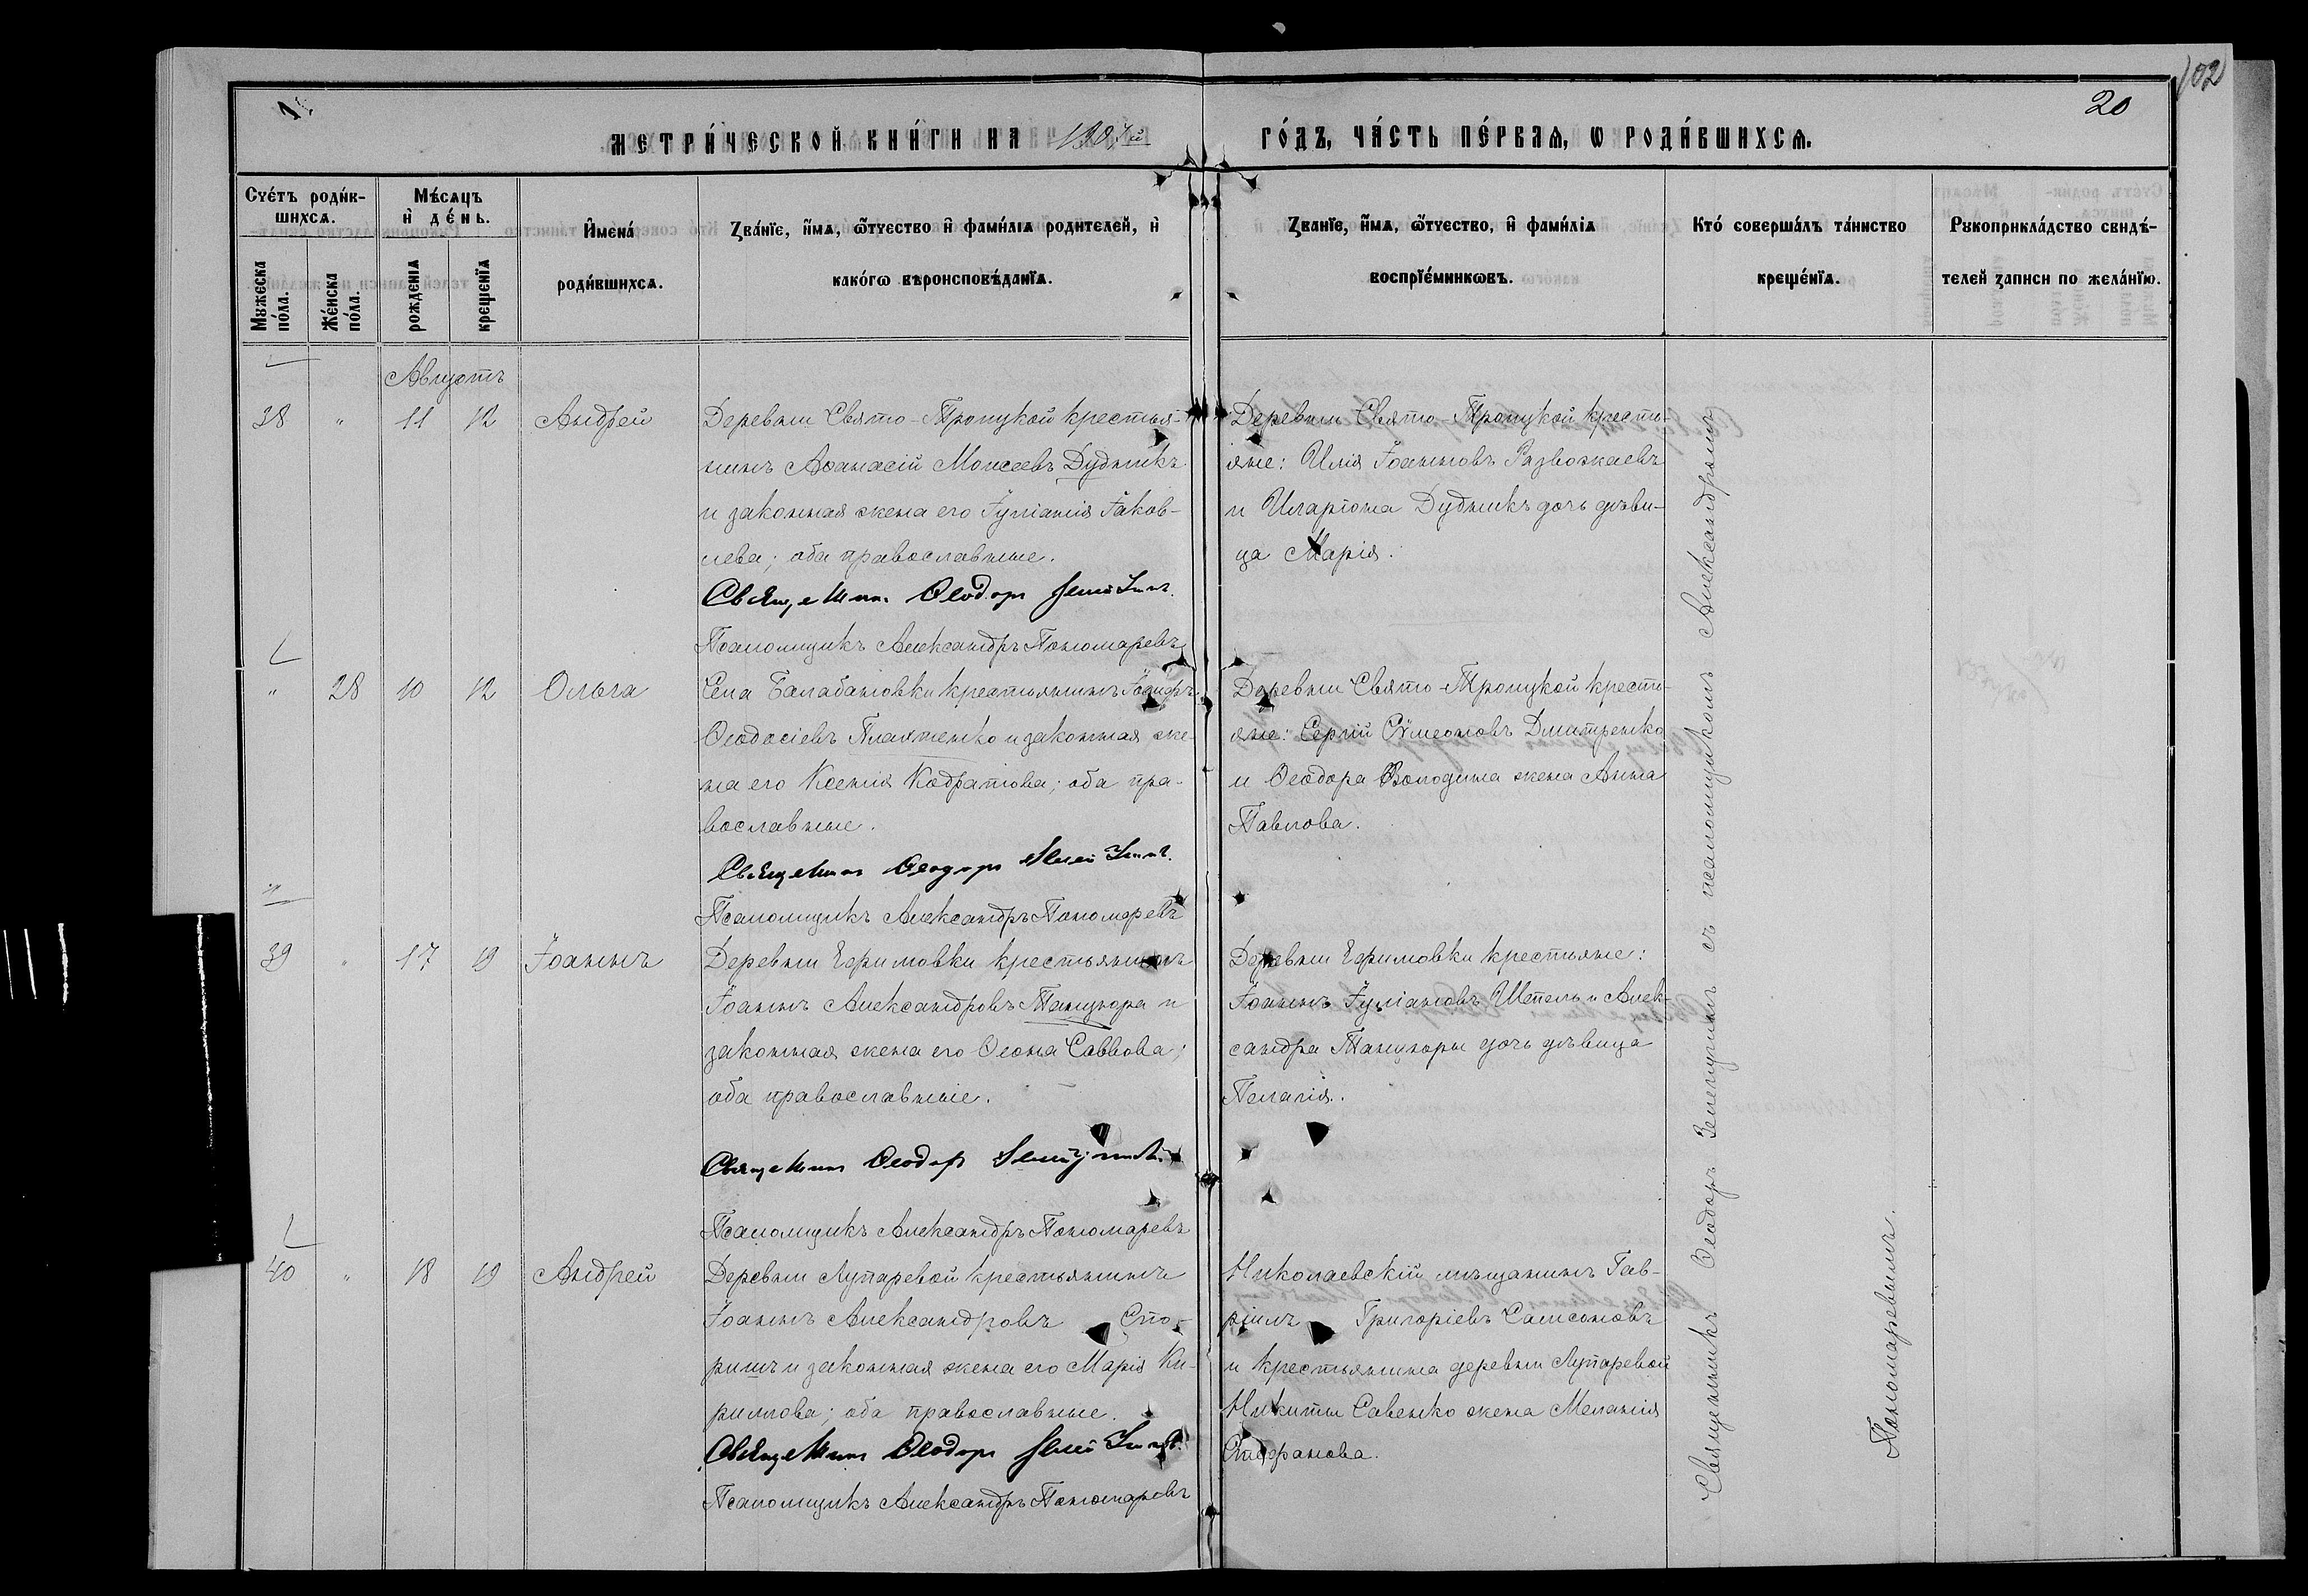 102
20
МЕТРИ́ЧЕСКОЙ КНИ́ГИ НА 1907й ГО́ДЪ, ЧА́СТЬ ПЕ́РВАѦ, Ѡ РОДИ́ВШИХСѦ.
Сче́тъ роди́в-
шихсѧ.
Мꙋжеска
по́ла.
Же́нска
по́ла.
Мѣ́сѧцъ
и҆ де́нь.
рожденїѧ
крещенїѧ
И҆мена́
роди́вшихсѧ.
Зва́нїе, и҆́мѧ, ѻ҆́тчество и҆ фами́лїѧ родителей, и҆
како́гѡ вѣроисповѣ́данїѧ.
Зва́нїе, и҆́мѧ, ѻ҆́тчество, и҆ фами́лїѧ
воспрїе́мниковъ.
Кто́ соверша́лъ та́инство
креще́нїѧ.
Рꙋкоприкла́дство свидѣ́-
телей записи по жела́нїю.
Августъ
38 " 11 12 Андрей
Деревни Свято-Троицкой крестья-
нинъ Аѳанасій Моисеевъ Дудникъ
и законная жена его Іуліанія Іаков-
лева; оба православные.
Священникъ Ѳеодоръ
Псаломщикъ Александръ Пономаревъ
Деревни Свято-Троицкой крестья-
яне: Илія Іоанновъ Развожаевъ
и Иларіона Дудникъ дочь дѣви-
ца Марія.
" 28 10 12 Ольга
Села Балабановки крестьянинъ Іосифъ
Ѳеодосіевъ Плахтенко и законная же-
на его Ксенія Кодратова; оба пра-
вославные.
Священникъ Ѳеодоръ
Псаломщикъ Александръ Пономаревъ
Деревни Свято-Троицкой кресть-
яне: Сергій Сѵмеоновъ Дмитренко
и Ѳеодора Володина жена Анна
Павлова.
39 " 17 19 Іоаннъ
Деревни Ефимовки крестьянинъ
Іоаннъ Александровъ Танцюра и
законная жена его Ѳеона Саввова;
оба православные.
Священникъ Ѳеодоръ
Псаломщикъ Александръ Пономаревъ
Деревни Ефимовки крестьяне:
Іоаннъ Іуліановъ Шепель и Алек-
сандра Танцюры дочь дѣвица
Пелагія.
40 " 18 19 Андрей
Деревни Лупаревой крестьянинъ
Іоаннъ Александровъ Спо-
ришъ и законная жена его Марія Ки-
риллова; оба православные.
Священникъ Ѳеодоръ
Псаломщикъ Александръ Пономаревъ
Николаевскій мѣщанинъ Гав-
ріилъ Григоріевъ Самсоновъ
и крестьянина деревни Лупаревой
Никиты Савенко жена Меланія
Стефанова.
Священникъ Ѳеодоръ съ псаломщикомъ Александромъ
Пономаревымъ.